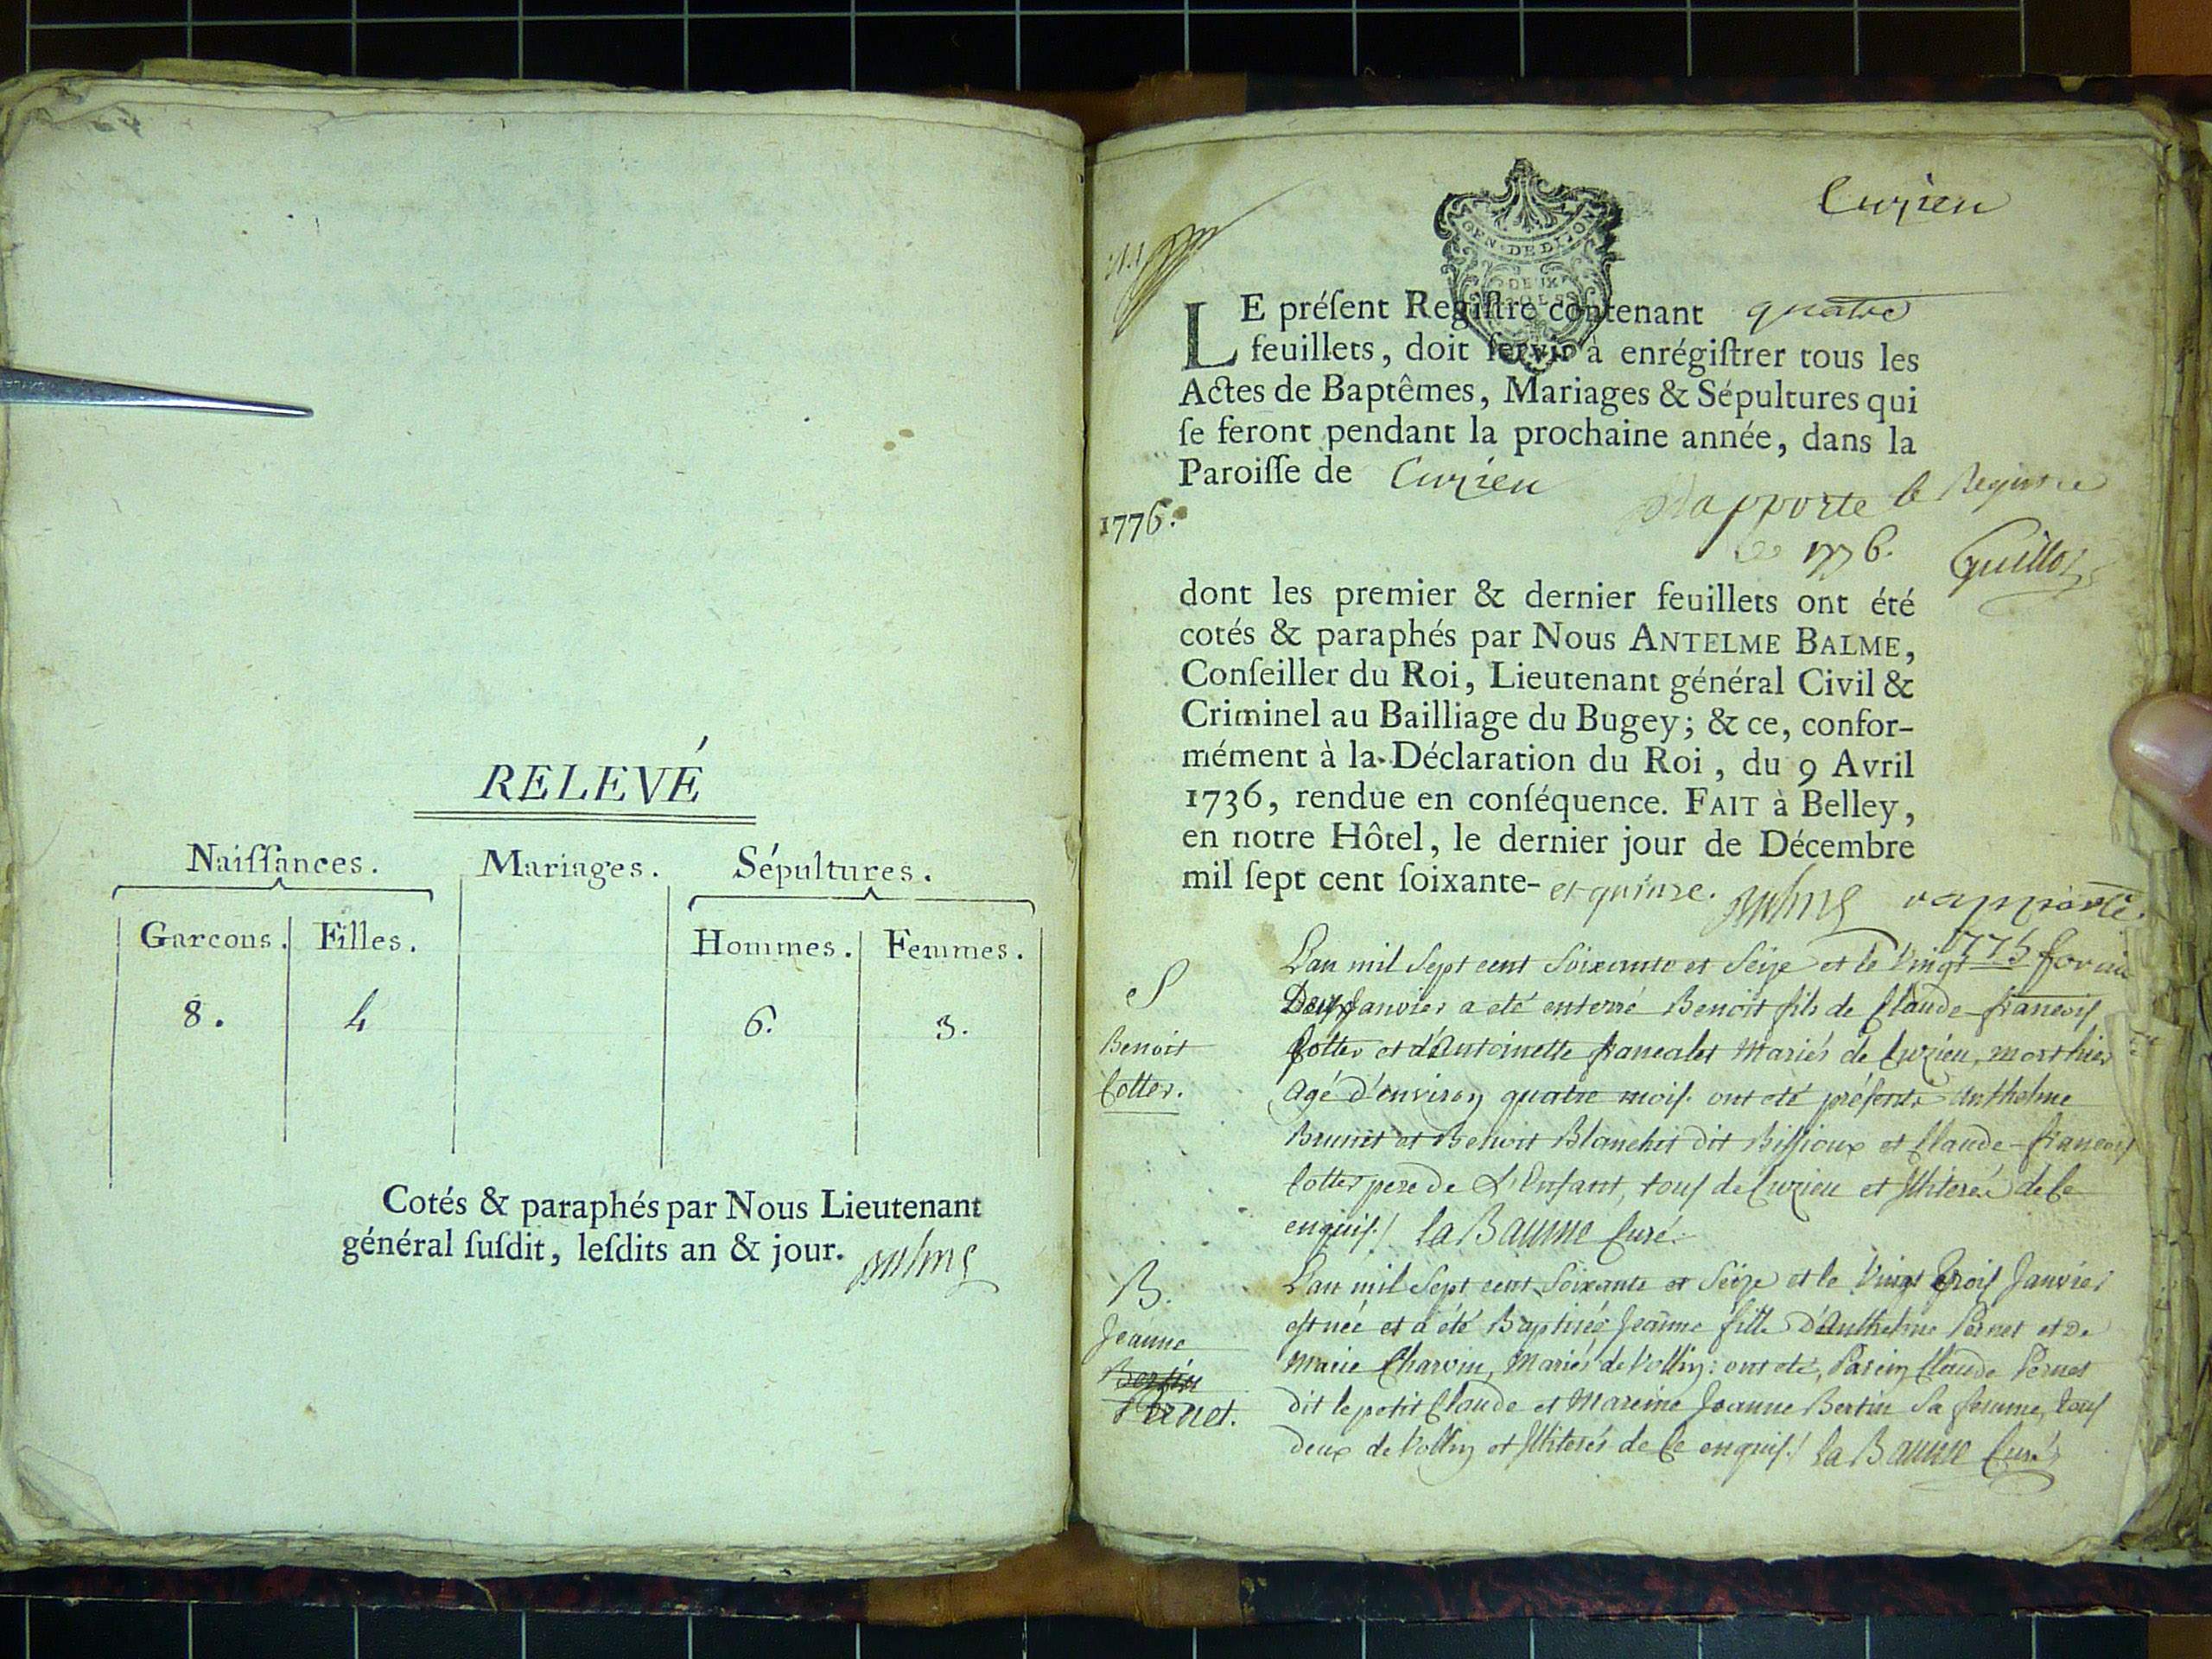 RELEVÉ
Naiſſances. Mariages. Sépultures.
Garcons. Filles. Hommes. Femmes.
8. 4 6. 3.
Cotés & paraphés par Nous Lieutenant
général ſuſdit, leſdits an & jour. Balme
Cuzieu
GEN. DE DIJON
DEUX
LE préſent Regiſtre contenant quatre
feuillets, doit ſervir à enrégiſtrer tous les
Actes de Baptêmes, Mariages & Sépultures qui
ſe feront pendant la prochaine année, dans la
Paroiſſe de Cuzieu
Rapporté le Registre
1776.
de 1776. Guillot
dont les premier & dernier feuillets ont été
cotés & paraphés par Nous ANTELME BALME,
Conſeiller du Roi, Lieutenant général Civil &
Criminel au Bailliage du Bugey; & ce, confor-
mément à la Déclaration du Roi, du 9 Avril
1736, rendue en conſéquence. FAIT à Belley,
en notre Hôtel, le dernier jour de Décembre
mil ſept cent ſoixante- et quinze. Balme rapporté.
1775
S
Benoit
Cotter.
L'an mil Sept cent Soixante et Seize et le Vingt
Deux Janvier a eté enterré Benoit fils de Claude-francois
Cotter et d'Antoinette francalet Mariés de Cuzieu, mort hier
agé d'environ quatre mois. ont eté présents Anthelme
Brunet et Benoit Blanchet dit Bissioux et Claude-francois
Cotter pere de L'Enfant, tous de Cuzieu et Illiterés de Ce
enquis./ la Baume Curé.
B.
Jeanne
Bertin
Pernet.
L'an mil Sept cent Soixante et Seize et le Vingt Trois Janvier
est née et a été Baptisée Jeanne fille d'Anthelme Pernet et de
Marie Charvin, Mariés de Vollin: ont eté, Parein Claude Pernet
dit le petit Claude et Mareine Jeanne Bertin Sa femme, tous
deux de Vollin et Illiterés de Ce enquis./ la Baume Curé